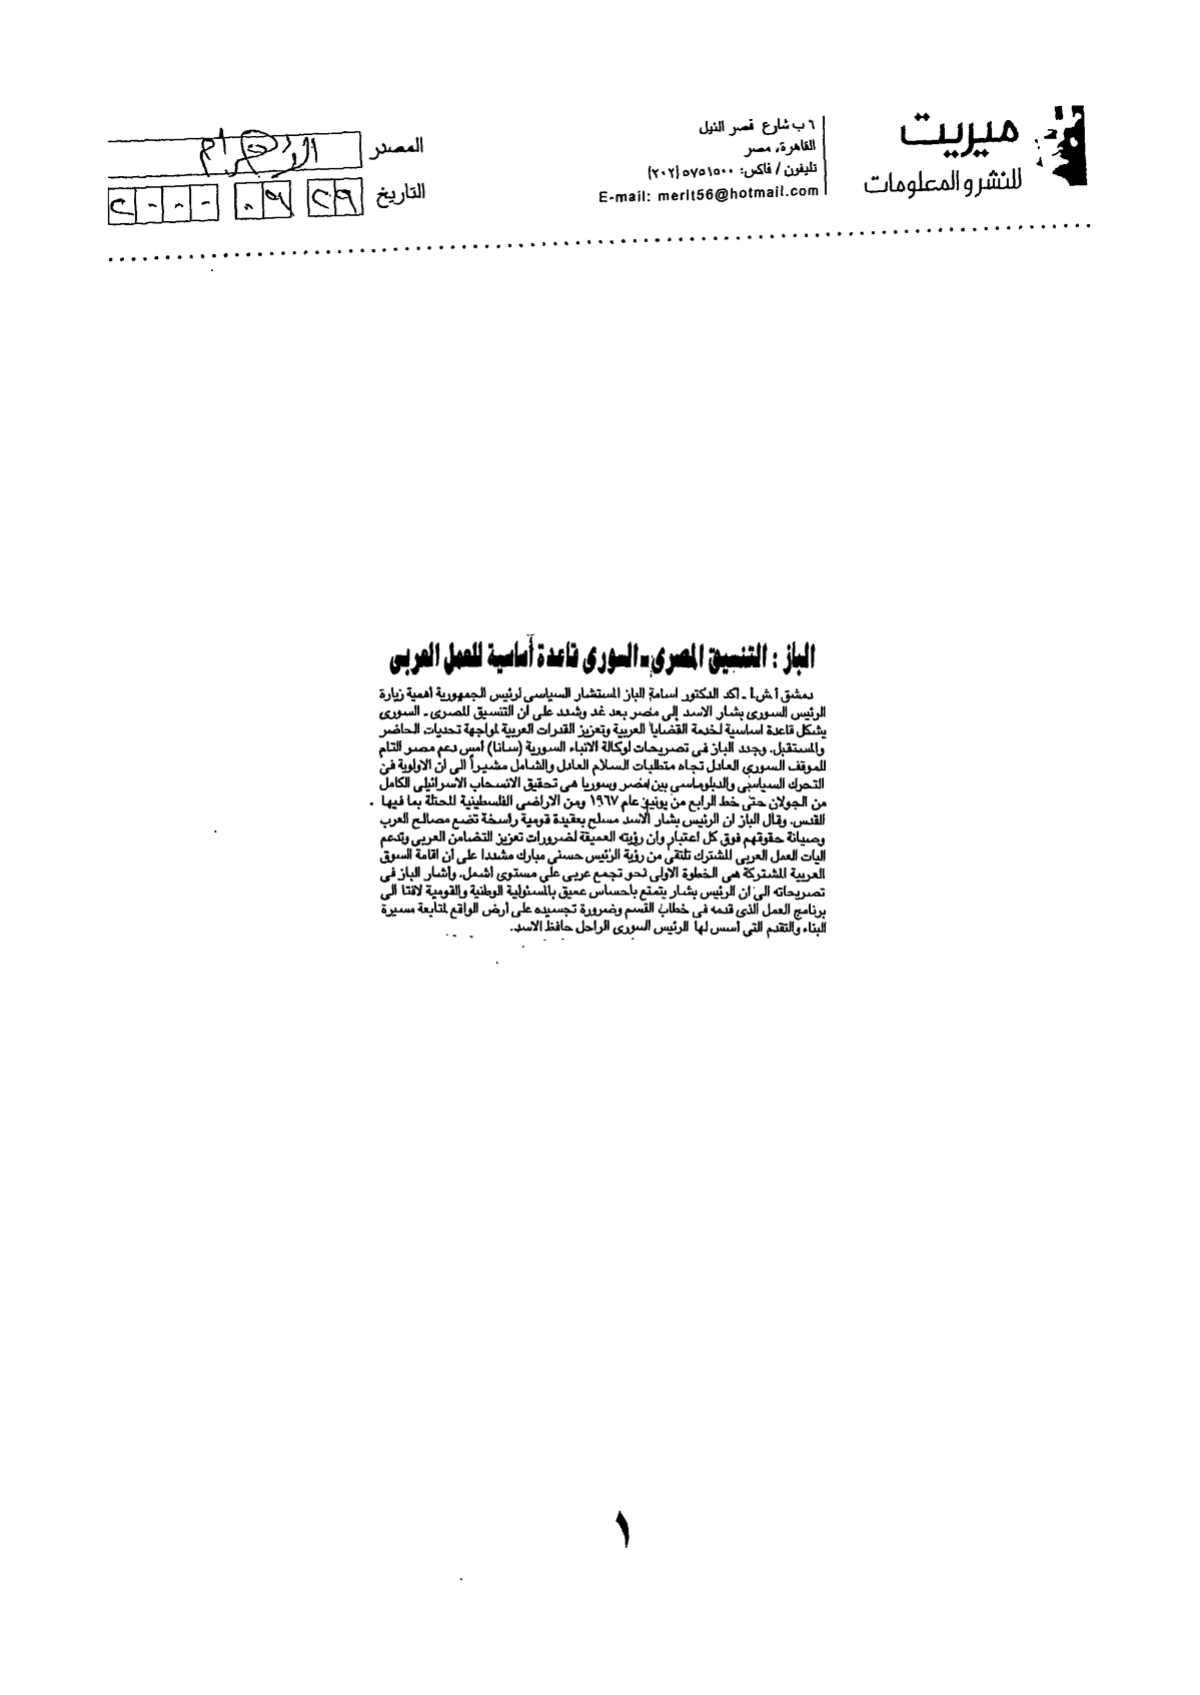 ميريت
للنشر والمعلومات
٦ ب شارع قصر النيل
القاهرة، مصر
تليفون / فاكس: ٥٧٥١٥٠٠ (٢٠٢)
E-mail: merit56@hotmail.com
المصدر الأهرام
التاريخ ٢٩ ٠٩ ٢٠٠٠
الباز : التنسيق المصرى - السورى قاعدة أساسية للعمل العربى
دمشق أ.ش.أ ـ اكد الدكتور اسامة الباز المستشار السياسى لرئيس الجمهورية اهمية زيارة
الرئيس السورى بشار الاسد إلى مصر بعد غد وشدد على ان التنسيق المصرى ـ السورى
يشكل قاعدة اساسية لخدمة القضايا العربية وتعزيز القدرات العربية لمواجهة تحديات الحاضر
والمستقبل. وجدد الباز فى تصريحات لوكالة الانباء السورية (سانا) أمس دعم مصر التام
للموقف السورى العادل تجاه متطلبات السلام العادل والشامل مشيراً الى ان الاولوية فى
التحرك السياسى والدبلوماسى بين مصر وسوريا هى تحقيق الانسحاب الاسرائيلى الكامل
من الجولان حتى خط الرابع من يونيو عام ١٩٦٧ ومن الاراضى الفلسطينية المحتلة بما فيها
القدس. وقال الباز ان الرئيس بشار الاسد مسلح بعقيدة قومية راسخة تضع مصالح العرب
وصيانة حقوقهم فوق كل اعتبار وان رؤيته العميقة لضرورات تعزيز التضامن العربى وتدعم
اليات العمل العربى المشترك تلتقى من رؤية الرئيس حسنى مبارك مشددا على أن اقامة السوق
العربية المشتركة هى الخطوة الاولى نحو تجمع عربى على مستوى أشمل. وأشار الباز فى
تصريحاته الى ان الرئيس بشار يتمتع باحساس عميق بالمسئولية الوطنية والقومية لافتا الى
برنامج العمل الذى قدمه فى خطاب القسم وضرورة تجسيده على أرض الواقع لمتابعة مسيرة
البناء والتقدم التى أسس لها الرئيس السورى الراحل حافظ الاسد.
١